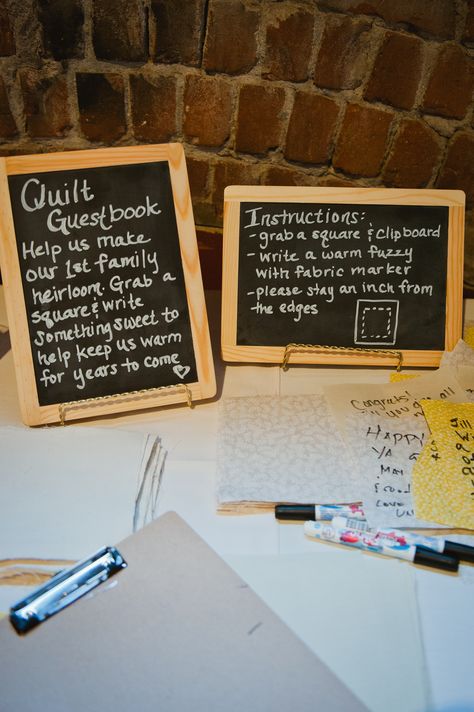 Quilt
Guestbook
Help us make
our 1st family
heirloom. Grab a
square & write
something sweet to
help keep us warm
for years to come
Instructions:
- grab a square & clipboard
- write a warm fuzzy
with fabric marker
- please stay an inch from
the edges
Congrats
all you
Happy
Ya
Ma
Love